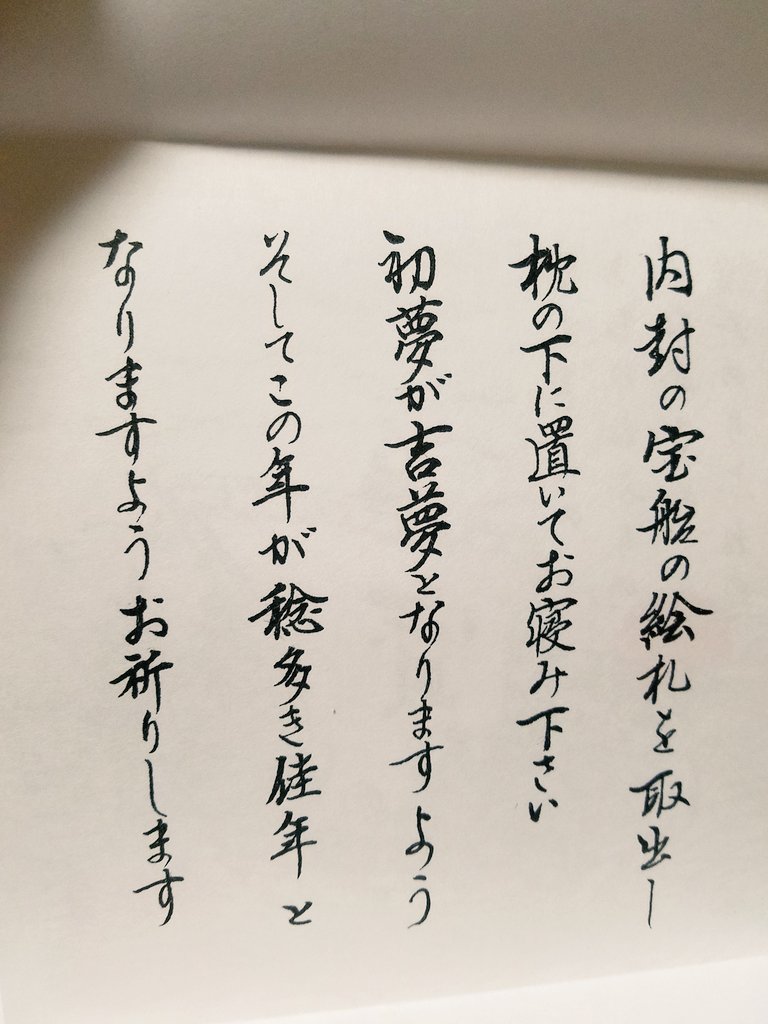 内封の宝船の絵札を取出し
枕の下に置いてお寝み下さい
初夢が吉夢となりますよう
そしてこの年が稔多き佳年と
なりますようお祈りします